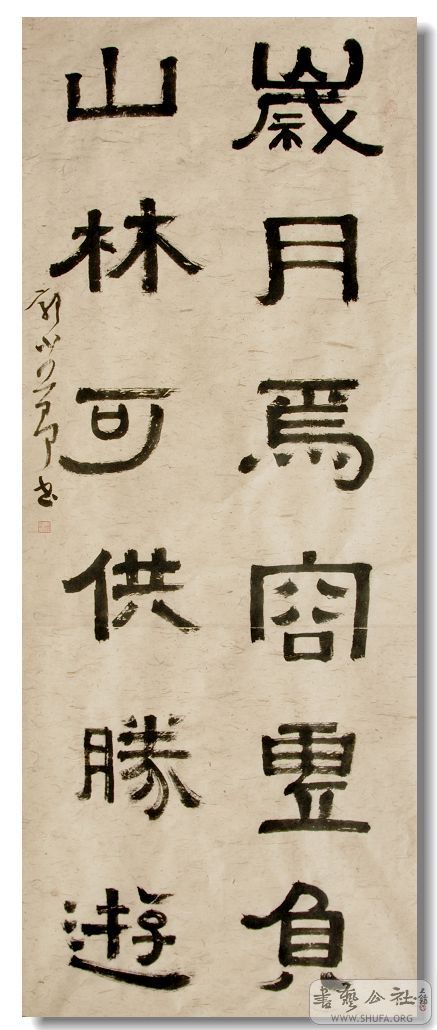 歲月焉容虛負
山林可供勝遊
書
書藝公社
WWW.SHUFA.ORG